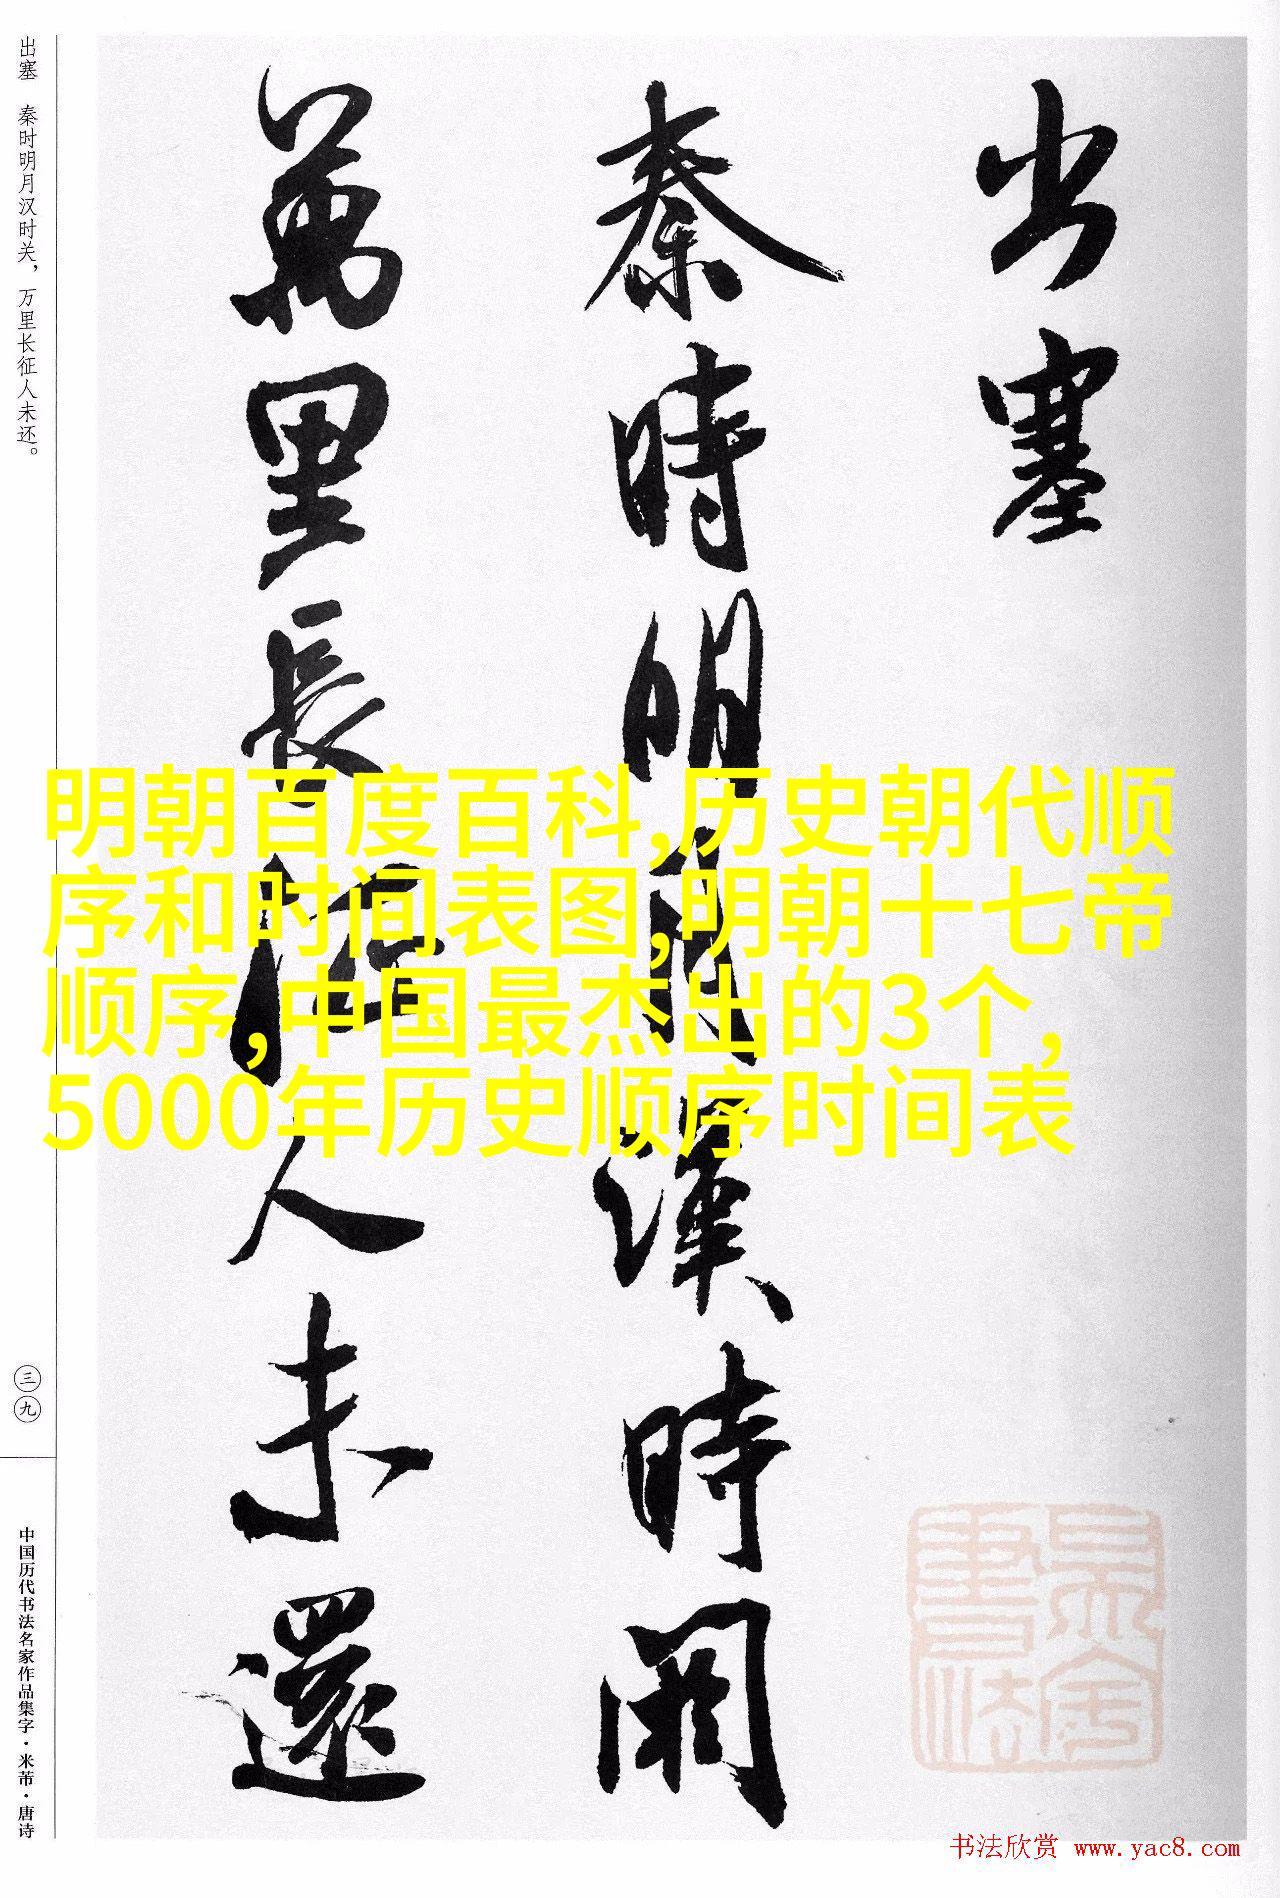 出塞
秦時明月漢時関
萬里長征人未還
出塞 秦时明月汉时关，万里长征人未还。
三九
中国历代书法名家作品集字·米芾·唐诗
明朝百度百科,历史朝代顺
序和时间表图,明朝十七帝
顺序,中国最杰出的3个,
5000年历史顺序时间表
书法欣赏 www.yac8.com